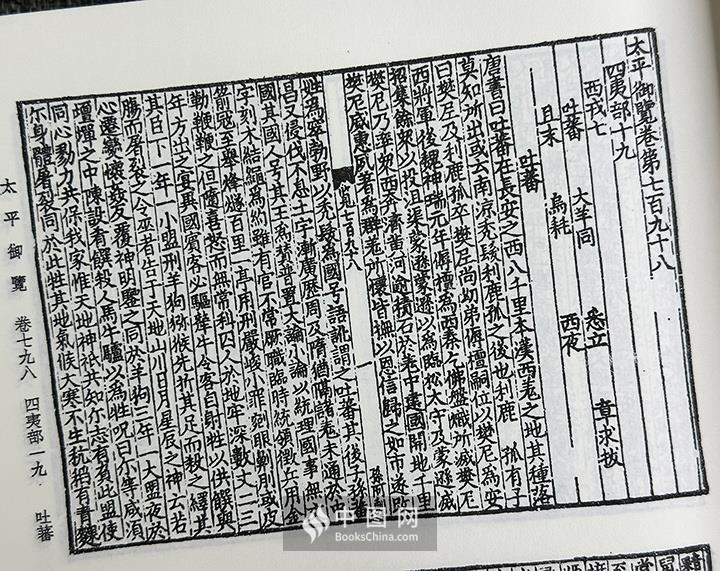 太平御覽卷第七百九十八
四夷部十九
西戎七
吐蕃 大羊同 悉立 章求拔
且末 烏秏 西夜
吐蕃
唐書曰吐蕃在長安之西八千里本漢西羌之地其種落
莫知所出或云南涼禿髮利鹿孤之後也利鹿孤有子
曰樊尼及利鹿孤卒樊尼尚幼弟傉檀嗣位以樊尼為安
西將軍後魏神瑞元年傉檀為西秦乞佛盤熾所滅樊尼
招集餘衆以投沮渠蒙遜蒙遜以為臨松太守及蒙遜滅
樊尼乃率衆西奔濟黃河逾積石於羌中建國開地千里
樊尼威惠夙著為群羌所懷皆撫以恩信歸之如市遂改
覽七百九十八
姓為窣勃野以禿髮為國号語訛謂之吐蕃其後子孫
昌又侵伐不息土宇漸廣歷周及隋猶隔諸羌未通於
國其國人号其王為贊普置大論小論以統理國事無
字刻木結繩為約雖有官不常厥職臨時統領徵兵用金
箭寇至舉烽燧百里一亭用刑嚴峻小罪剜眼鼻刖或皮
鞭鞭之但隨喜怒而無常科囚人於地牢深數丈二三
年方出之宴異國賓客必驅犛牛令客自射牲以供饌與
其臣下一年一小盟刑羊狗獼猴先折其足而殺之繹其
腸而屠裂之令巫者告于天地山川日月星辰之神云若
心遷變懷姦反覆神明鑒之同於羊狗三年一大盟夜於
壇墠之中陳設肴饌殺人馬牛驢以為牲呪曰尔等咸須
同心勠力共保我家惟天地神祇共知尔志有負此盟使
尔身體屠裂同於此牲其地氣候大寒不生秔稻有青䴷
太平御覽 卷七九八 四夷部一九 吐蕃
中图网
BooksChina.com